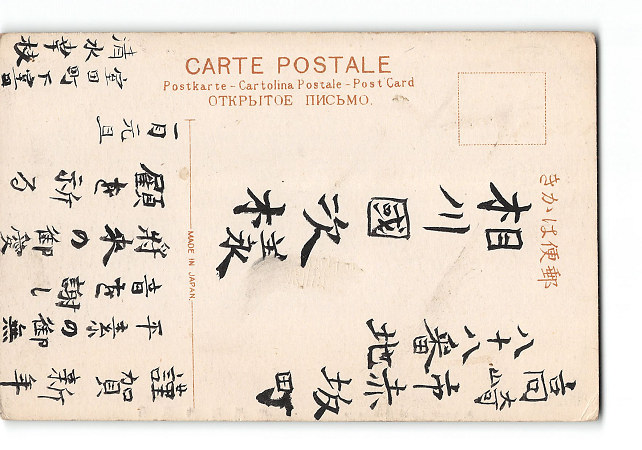 CARTE POSTALE
Postkarte - Cartolina Postale - Post Card
ОТКРЫТОЕ ПИСЬМО.
郵便はかき
高崎市赤坂町
八十八番地
相川國次様
MADE IN JAPAN.
謹賀新年
平素の御無
音を謝し
将来の御發
を祈る
一月元旦
室田町下室田
清水